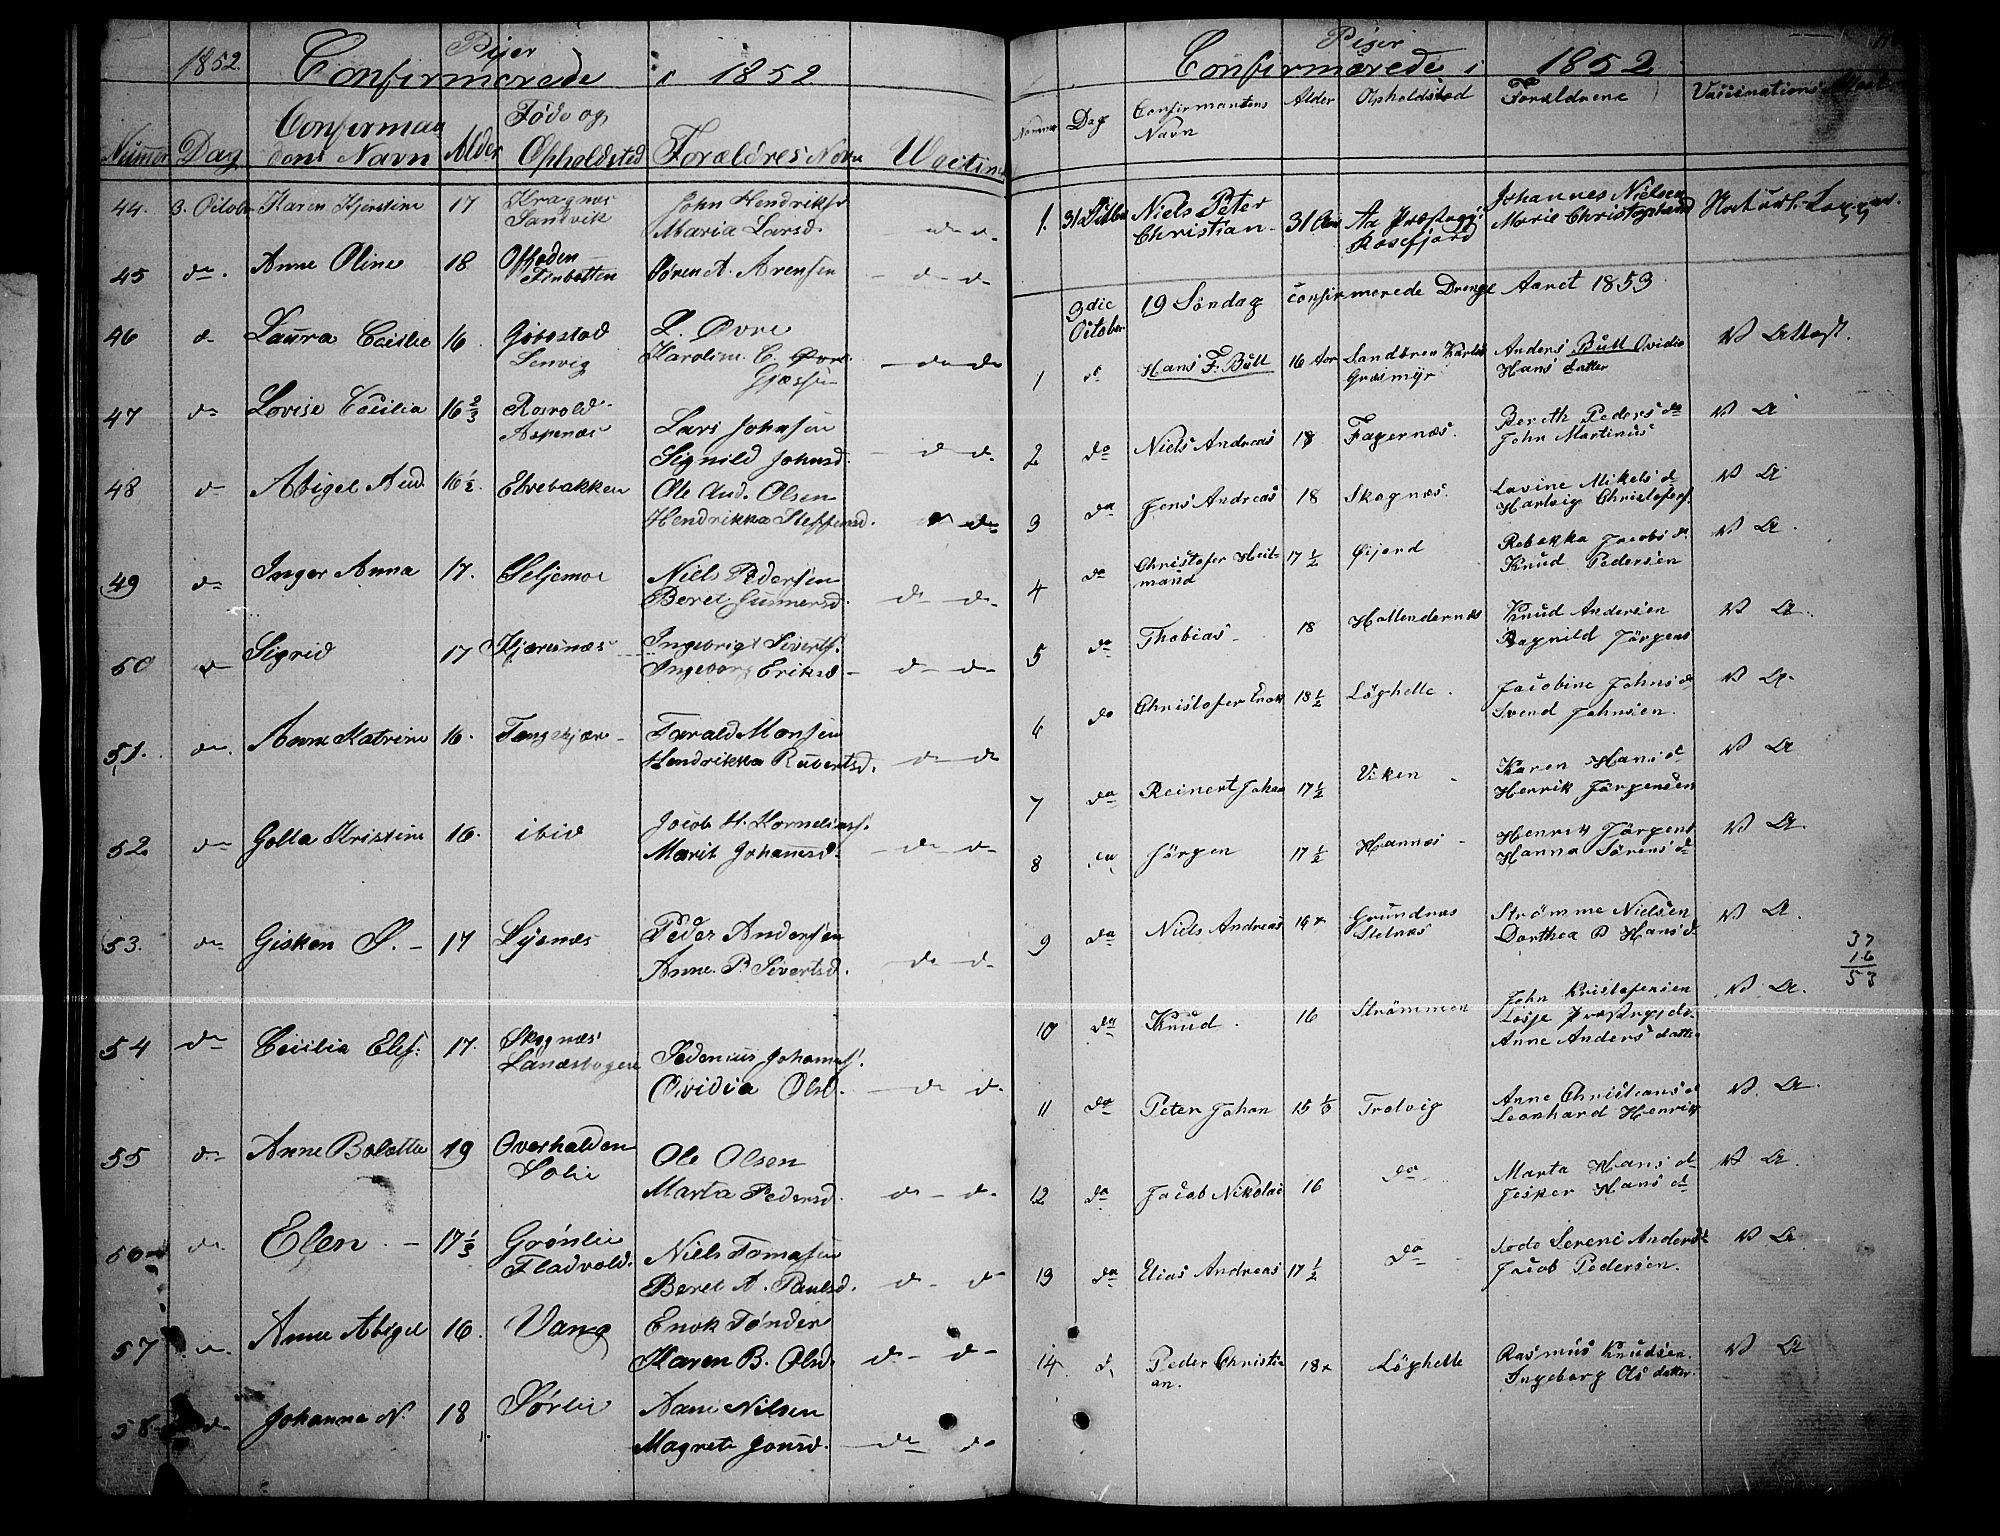 1852
Piger
Confirmerede i 1852
Numer Dag Confirman dens Navn Alder Føde og Opholdsted Forældres Navn Vactin
44. 3. Octobr Karen Kjerstine 17 Kragnæs Sandvik John Hendriks Maria Larsd. do do
45 do. Anne Oline 18 Ofoden Finbotten Søren A. Arensen do do
46 do Laura Cecilie 16 Gibostad Lenvig L. Øvre Karolin. C. Gjæsse do do
47 do Lovise Cecilia 16 2/3 Rosvold Aspenæs Lars Johnsen Signild Johnsd. do do
48 do And. 16 1/2 Elvebakken Ole And. Olsen Hendrikka Steffensd. do do
49 do Inger Anna 17. Seljemoe Niels Pedersen Beret Gunnersd. do do
50 do Sigrid 17 Kjæresnæs Ingebrigt Sivertf. Ingeborg Eriksd do do
51. do. Anne Katrine 16. Tengskjær Farald Monsen Hendrikka Rubertsd. do do
52 do Golla Kristine 16. ibid Jocob H. Korneliusf. Marit Johansd. do do
53. do Gisken S. 17 Lysnæs Peder Andersen Anne. P. Sivertsd. do do
54 do Cecilia Elis: 17. Skognæs Pedenius Johannesf. Ovidia Olsd. do do
55 do Anne Bolette 19 Overhalden Solie Ole Olsen Marta Pedersd. do do
56 do Elen. 17 1/3 Grønlie Fladvold. Niels Tomasen Beret A. Paulsd. do do
57 do Anne Abigel 16. Vang Enok Tønder Karen B. Olsd. do do
58 do Johanna N. 18 Sørlie Nilsen Magrete Jonsd. do do
Piger
Confirmerede i 1852
Nummer Dag Confirmantens Navn Alder Opholdsted Foreldrene Vaccinations Attest
1. 31 Octbr Niels Peter Christian 31 Aar Johannes Nielsen Marie Naturl. Kopper.
3die October 19 Søndag confirmerede Drenge Aaret 1853
1 do Hans F. Bull 16 Aar Græsmyr Anders Bull Ovidia Hans datter V Attest.
2 do Niels Andreas 18 Fagernæs. Bereth Peders do John Martinus V A
3 do Jens Andreas 18 Skognæs. Lavine Mikels d Hartvig Christofersf V A
4 do Christofer Heit- mand 17 1/2 Øijord Rebekka Jacobs d Knud Pedersen V A.
5 do Thobias 18 Hollendernæs Knud Andersen Ragnild Jørgens V A.
6 do Christofer Enok 18 1/2 Løghelle. Jacobine Johns d Svend Johnsen. V A.
7 do Reinert Johan 17 1/2 Viken Karen Hans d Henrik Jørgensen V A
8 do Jørgen 17 1/2 Hannæs Henrik Jørgens Hanna Sørens d V A.
9 do Niels Andreas 19 Grundnæs Stelnæs Strømme Nielsen Dorthea P Hans d V A.
37
16
53
10 do Knud. 16 Strømmen John Kristofersen Anne Anders datter V A.
11 do Peter Johan 15 1/3 Trolvig Anne Christians d Leonhard Henrik V A.
12 do Jacob Nikolai 16 do Marta Hans d Jesper Hans d V A.
13 do Elias Andreas 17 1/2 do Sereni Andersd Jacob Pedersen. V A.
14 d. Peder Christi- an. 18 Løghelle Rasmus Knudsen. Ingeborg Ols datter. V A